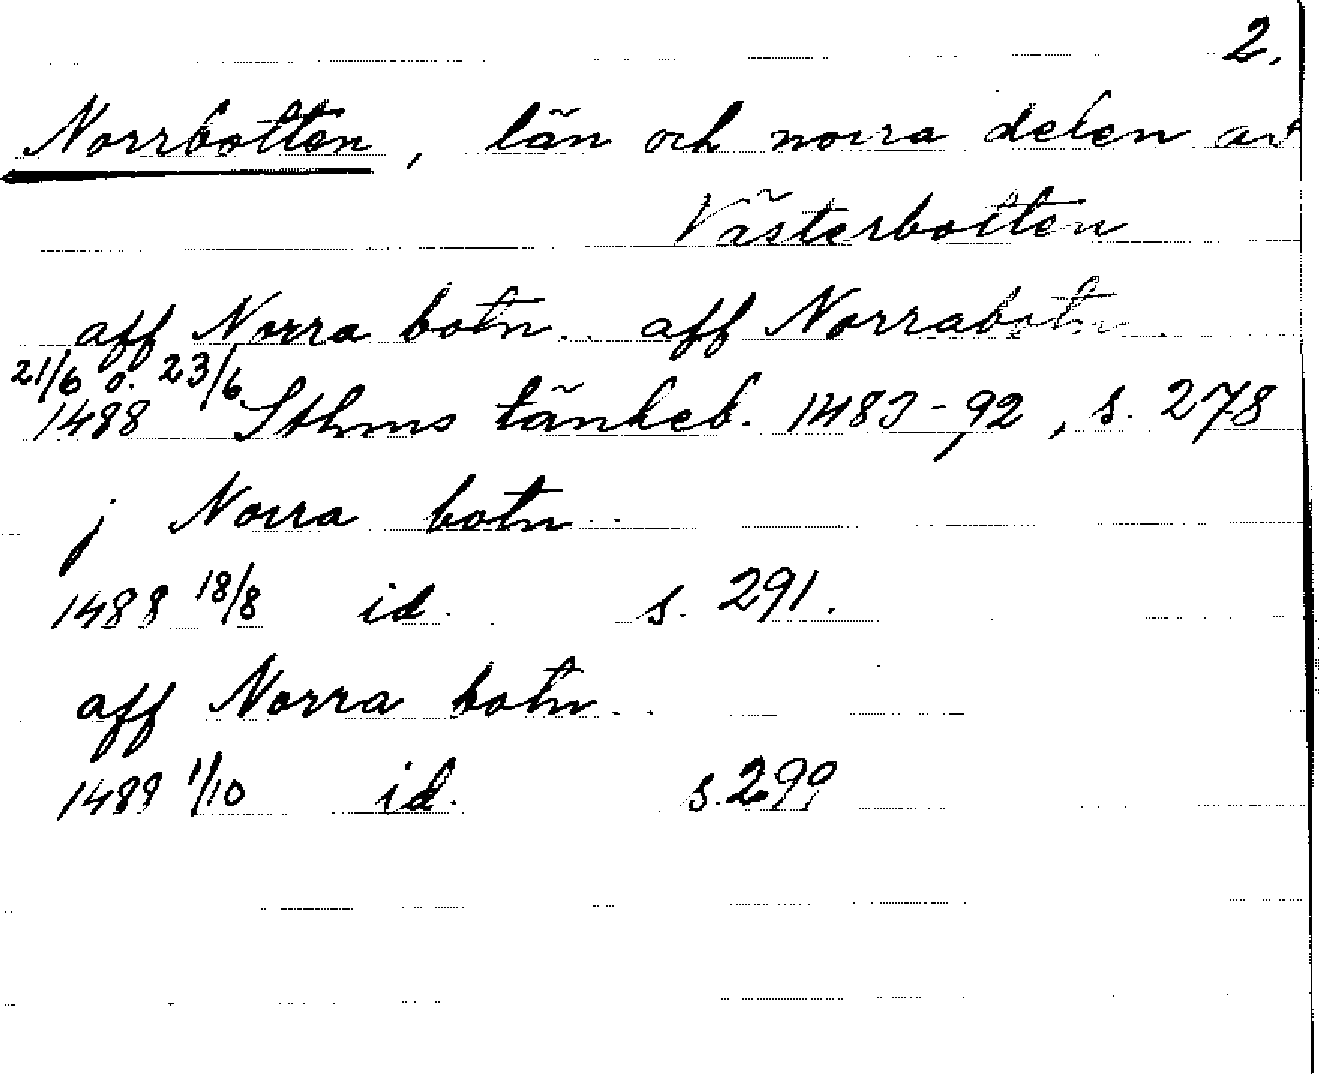 2.
Norrbotten, län och norra delen av
Västerbotten
aff Norra botn. aff Norrabotn.
21/6 o. 23/6
1488 Sthms tänkeb. 1483-92, s. 278
j Norra botn
1488 18/8 id. s. 291.
aff Norra botn.
1488 1/10 id. s. 299